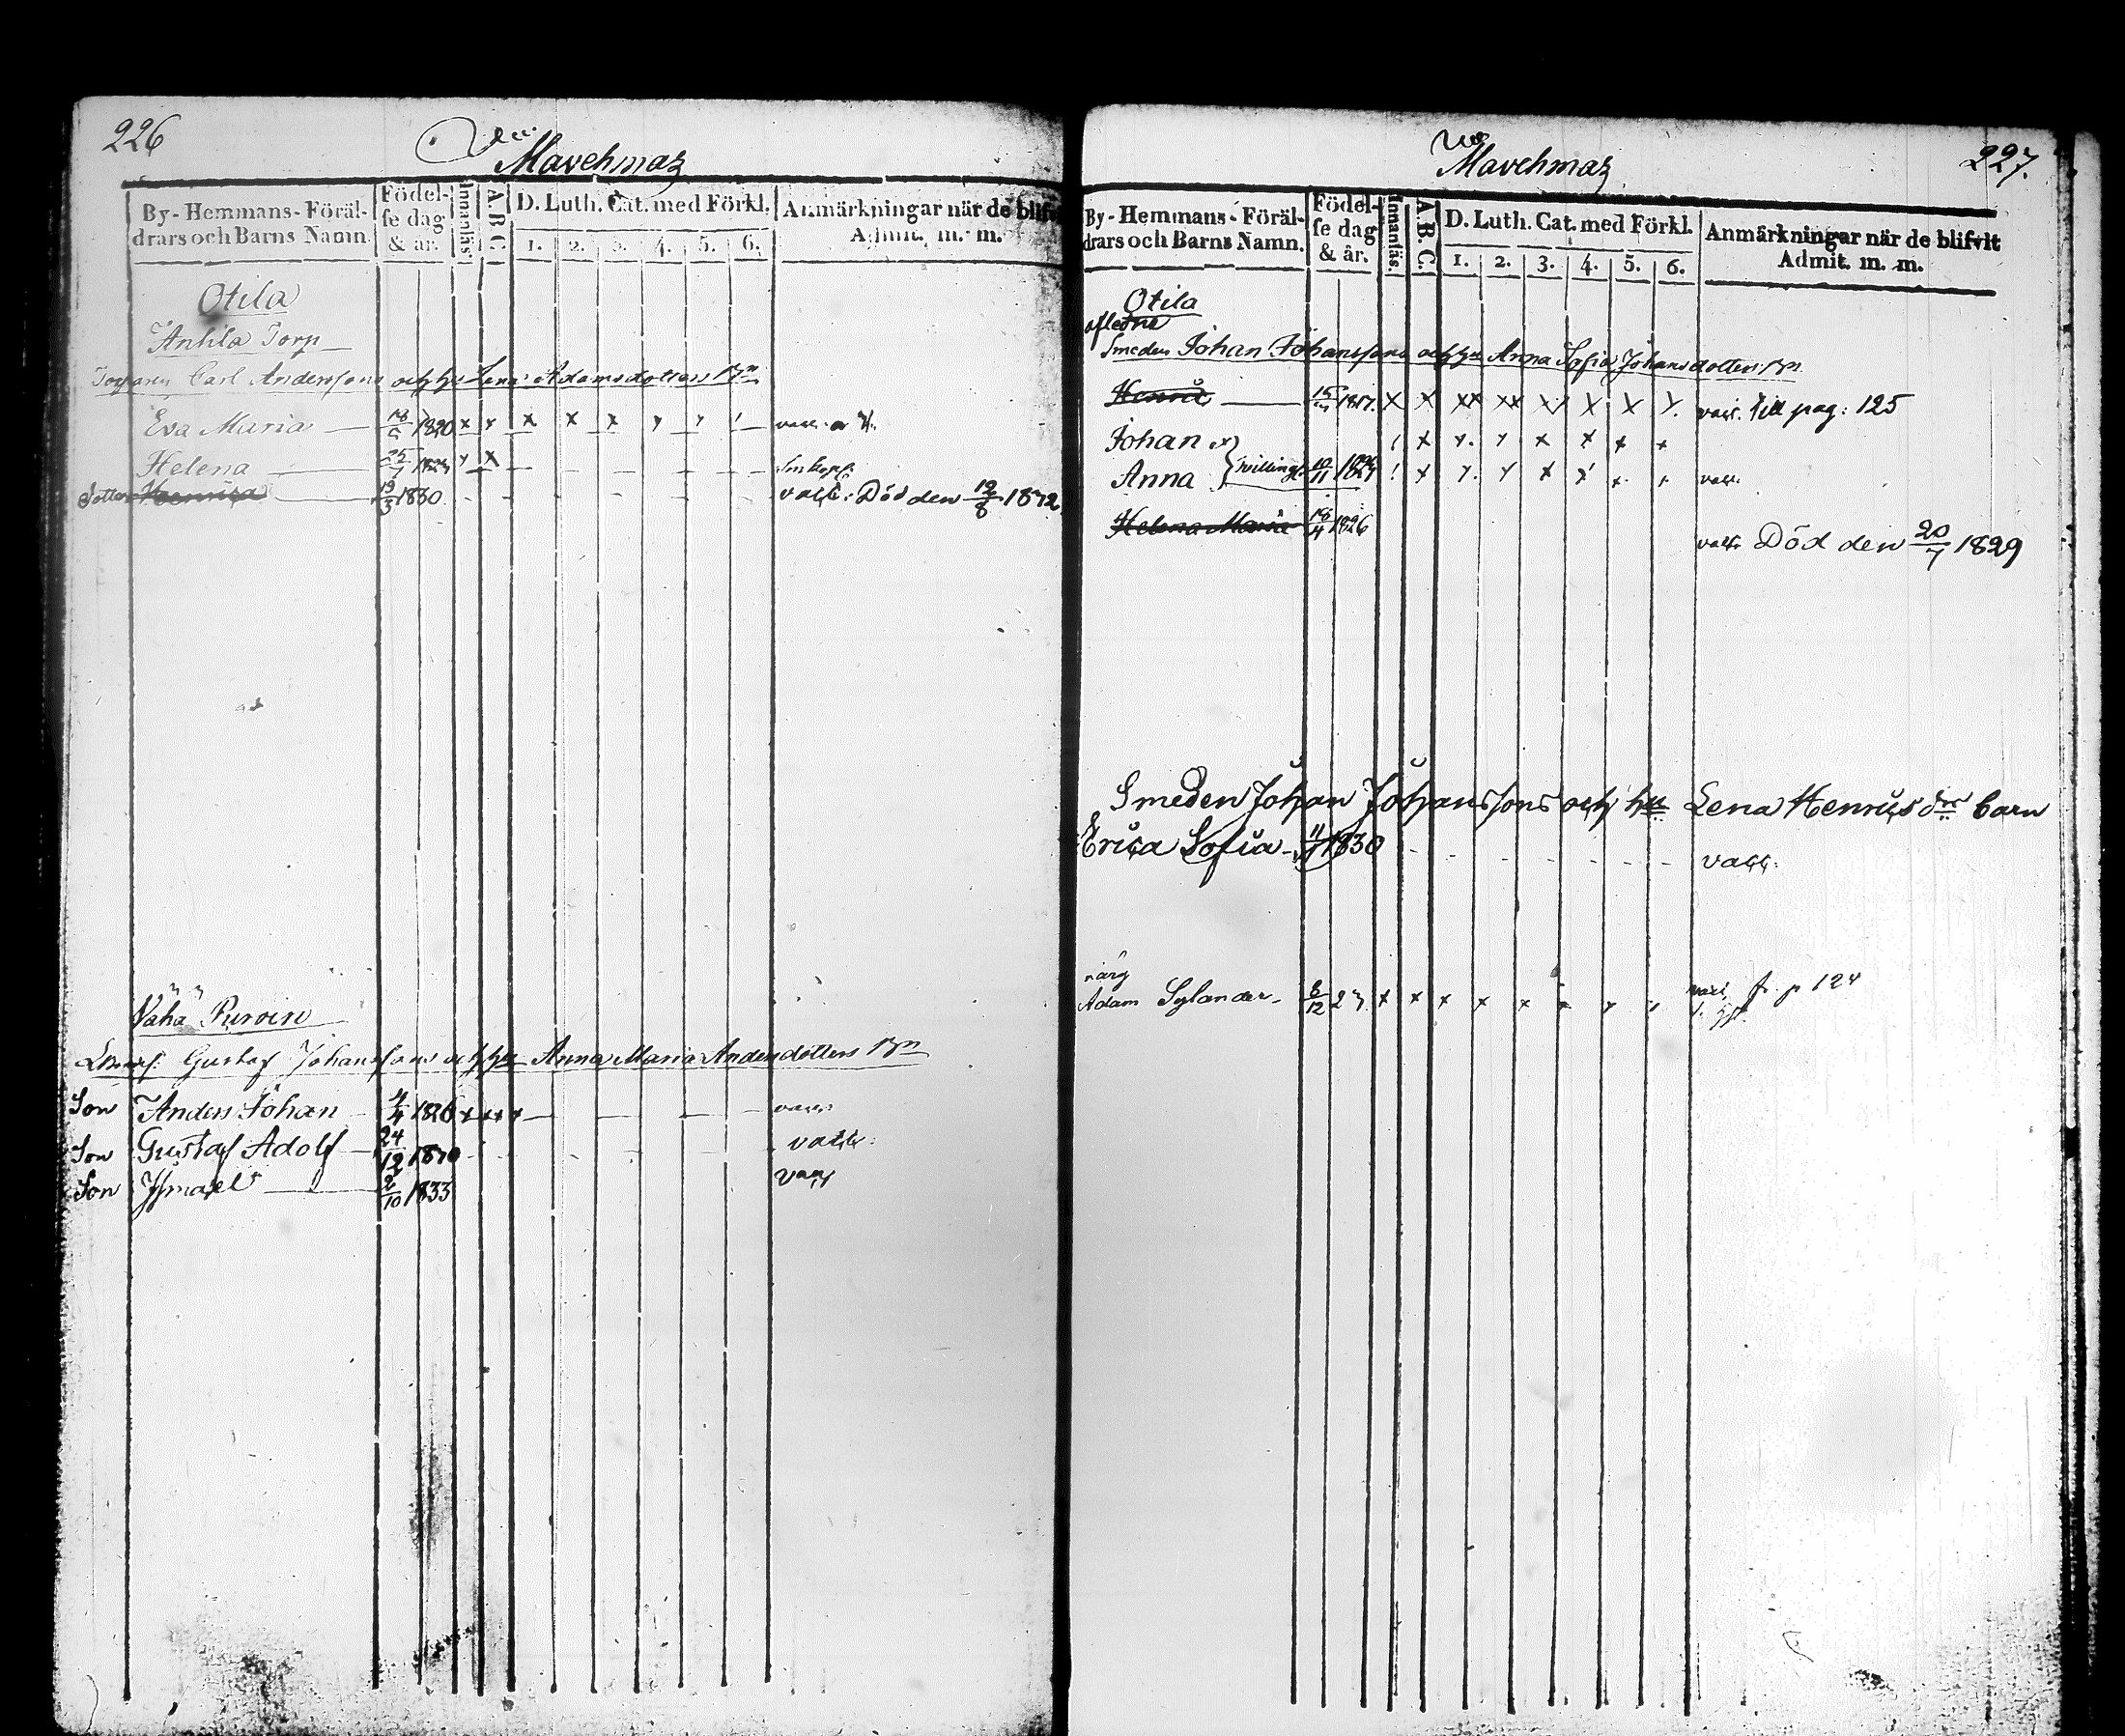 226
Mavehmaa
By-Hemmans-Föräl-
drars och Barns Namn.
Födel-
se dag
& år.
Innanläs.
A.B.C.
D. Luth. Cat. med Förkl.
1. 2. 3. 4. 5. 6.
Anmärkningar när de blifvit
Admit. m. m.
Otila
Anhla Torp
Torparen Carl Anderssons och hu Lena Adamsdotters Bn
Eva Maria 1820 x x x x x vacc.
Helena 25/7 x Smkopf.
Dotter Henrica 19/3 1830 vacc: Död den 12/8 1832
Vähä Puroin
Gustaf Johanssons och hu Anna Maria Andersdotters Bn
Son Anders Johan 4/4 1826 x x x x vacc:
Son Gustaf Adolf 24/12 1830 vacc:
Son Ismael 2/10 1833 vacc
227.
Mavehmaa
By-Hemmans-Föräl-
drars och Barns Namn.
Födel-
se dag
& år.
Innanläs.
A.B.C.
D. Luth. Cat. med Förkl.
1. 2. 3. 4. 5. 6.
Anmärkningar när de blifvit
Admit. m. m.
Otila
afledne
Smeden Johan Johanssons och hu Anna Sofia Johansdotters Bn
Henric 1817. x x xx xx x x x x. vacc. till pag: 125
Johan x x x x x x x
Anna tvilling: 10/11 1824 x x x x x x vacc.
Helena Maria 18/4 1826
vacc. Död den 20/7 1829
Smeden Johan Johanssons och hu Lena Henrics dr barn
Erica Sofia 11/11 1830 vacc:
Adam Sylander 6/12 27 x x x x x vacc. fr. p 124